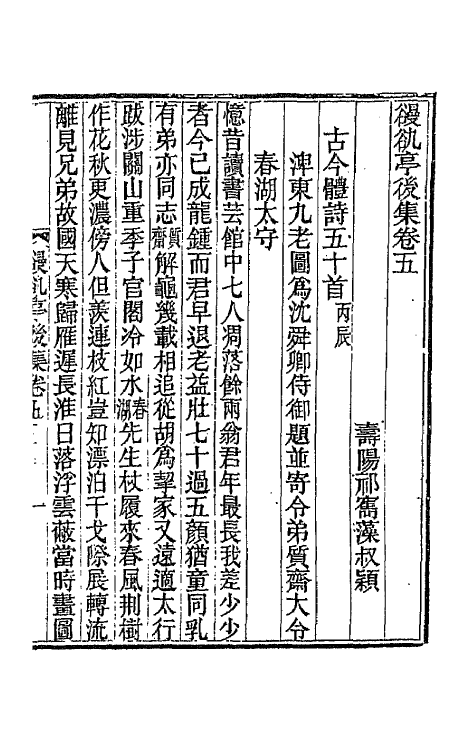 䜱䜪亭後集卷五
壽陽祁寯藻叔穎
古今體詩五十首丙辰
淠東九老圖為沈舜卿侍御題並寄令弟質齋大令
春湖太守
憶昔讀書芸館中七人凋落餘兩翁君年最長我差少少
者今已成龍鍾而君早退老益壯七十過五顏猶童同乳
有弟亦同志質齋解龜幾載相追從胡為挈家又遠適太行
跋涉關山重季子官閣冷如水春湖先生杖履來春風荆樹
作花秋更濃傍人但羨連枝紅豈知漂泊干戈際展轉流
離見兄弟故國天寒歸雁遲長淮日落浮雲蔽當時畫圖
䜱䜪亭後集卷五
一